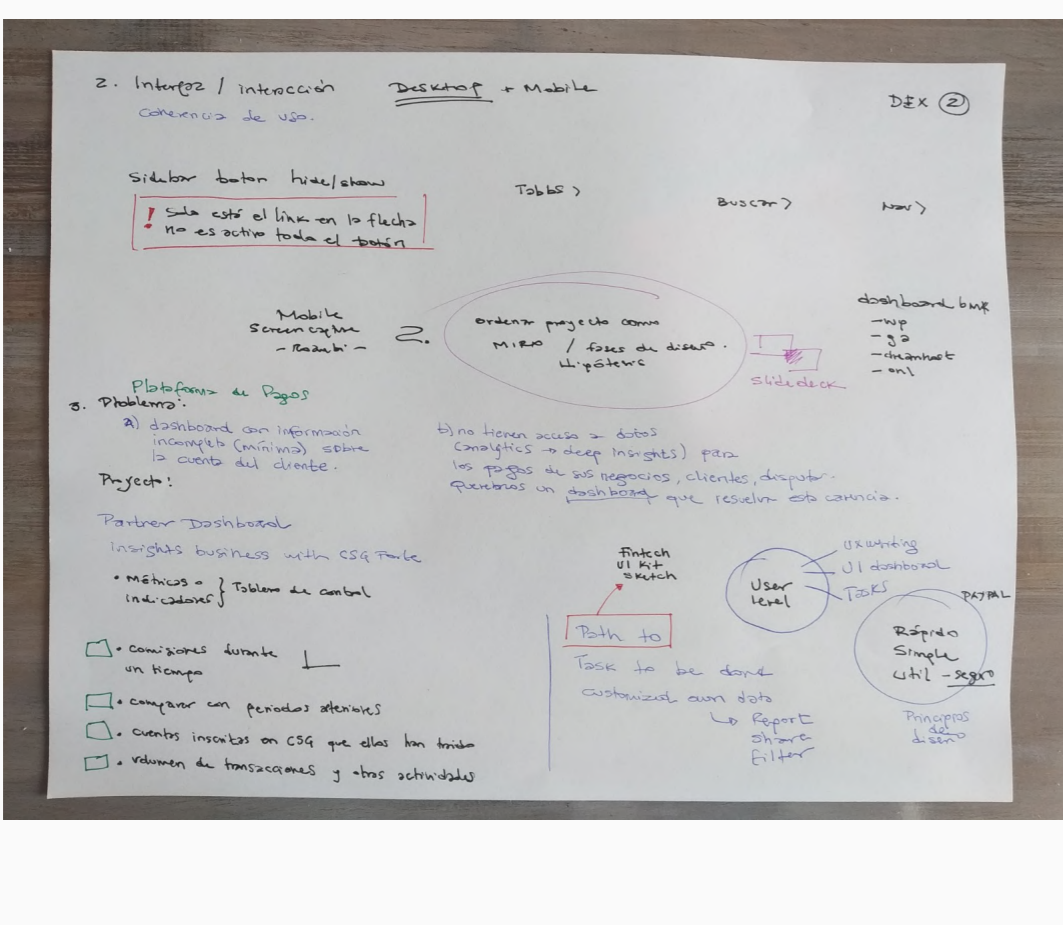 2. Interfaz / interacción Desktop + Mobile
DEX 2
Coherencia de uso.
Sidebar boton hide/show
Tabbs >
Buscar >
Nav >
! Solo está el link en la flecha
no es activo todo el botón
Mobile
Screen capture
2.
ordenar proyecto como
MIRO / fases de diseño.
Hipóteris
slidedeck
dashboard bmk
- wp
- ga
- dreamhost
- onl
Plataforma de Pagos
3. Problema:
a) dashboard con información
incompleta (mínima) sobre
la cuenta del cliente.
b) no tienen acceso a datos
(analytics → deep insights) para
los pagos de sus negocios, clientes, disputar.
queremos un dashboard que resuelva esta carencia.
Proyecto:
Partner Dashboard
insights business with CSG Forte
• Métricas o
indicadores } Tablero de control
• comisiones durante
un tiempo
• comparar con periodos anteriores
• cuentas inscritas en CSG que ellos han traido
• volumen de transacciones y otras actividades
Fintech
UI Kit
Sketch
Path to
Task to be done
customized own data
↳ Report
share
filter
User
level
UX writing
UI dashboard
Tasks
PAYPAL
Rápido
Simple
util - seguro
Principios
de
diseño